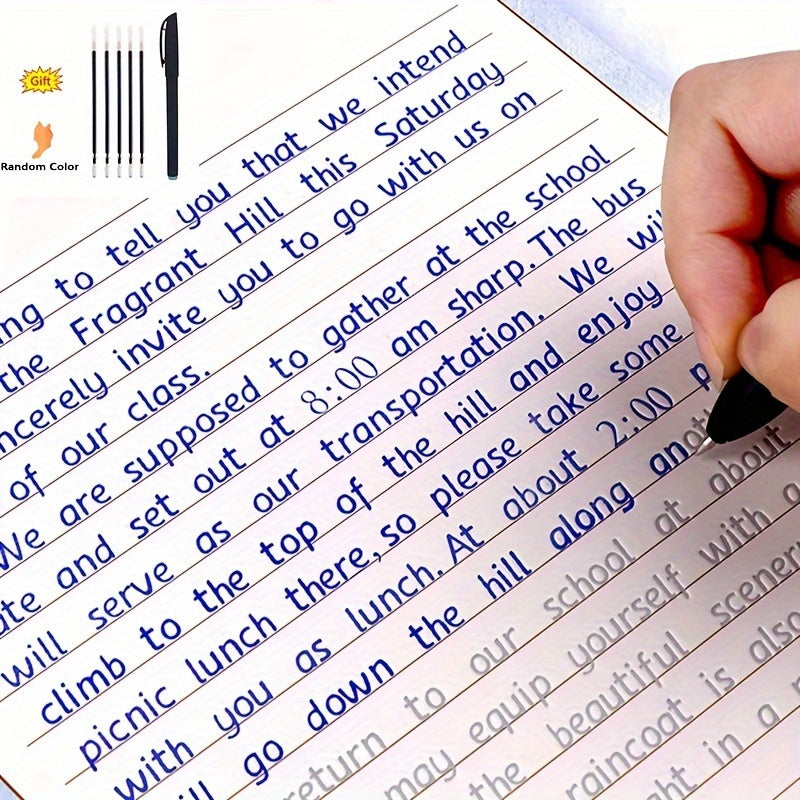 Gift
Random Color
to tell you that we intend
the Fragrant Hill this Saturday
invite you to go with us on
of our class.
We are supposed to gather at the school
and set out at 8:00 am sharp. The bus
will serve as our transportation. We
climb to the top of the hill and enjoy
picnic lunch there, so please take some
with you as lunch. At about 2:00
go down the hill along
return to our school at about
may equip yourself with a
the beautiful scenery
raincoat is also
in a